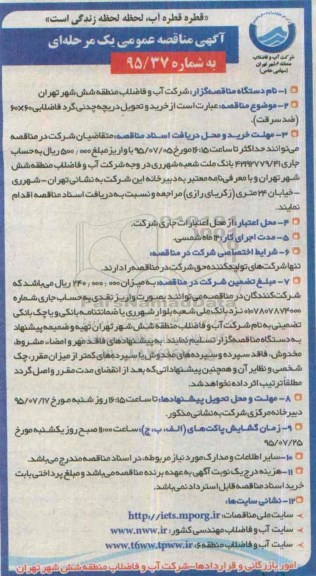 «قطره قطره آب، لحظه لحظه زندگی است»
آگهی مناقصه عمومی یک مرحله‌ای
به شماره ۹۵/۳۷
شرکت آب و فاضلاب
منطقه ۶ شهر تهران
(سهامی خاص)
۱- نام دستگاه مناقصه‌گزار: شرکت آب و فاضلاب منطقه شش شهر تهران
۲- موضوع مناقصه: عبارت است از خرید و تحویل دریچه چدنی گرد فاضلابی ۶۰×۶۰
(ضد سرقت).
۳- مهلت خرید و محل دریافت اسناد مناقصه: متقاضیان شرکت در مناقصه
می‌توانند حداکثر تا ساعت ۱۶:۱۵ مورخ ۹۵/۰۷/۰۵ با واریز مبلغ ۵۰۰/۰۰۰ ریال به حساب
جاری ۴۲۹۲۷۷۹/۴۱ بانک ملت شعبه شهرری در وجه شرکت آب و فاضلاب منطقه شش
شهر تهران و با معرفی‌نامه معتبر به دبیرخانه این شرکت به نشانی تهران - شهرری
- خیابان ۲۴ متری (زکریای رازی) مراجعه و نسبت به دریافت اسناد مناقصه اقدام
نمایند.
۴- محل اعتبار: از محل اعتبارات جاری شرکت.
۵- مدت اجرای کار: ۱۴ ماه شمسی.
۶- شرایط اختصاصی شرکت در مناقصه:
تنها شرکت‌های تولیدکننده حق شرکت در مناقصه را دارند.
۷- مبلغ تضمین شرکت در مناقصه: به میزان ۲۴۰/۰۰۰/۰۰۰ ریال می‌باشد که
شرکت‌کنندگان در مناقصه می‌توانند بصورت واریز نقدی به حساب جاری شماره
۰۱۰۷۸۰۷۸۷۴۰۰۰ نزد بانک ملی شعبه بلوار شهرری یا ضمانتنامه بانکی و یا چک بانکی
تضمینی به نام شرکت آب و فاضلاب منطقه شش شهر تهران تهیه و ضمیمه پیشنهاد
به دستگاه مناقصه‌گزار تسلیم نمایند. به پیشنهادهای فاقد مهر و امضاء، مشروط،
مخدوش، فاقد سپرده و سپرده‌های مخدوش یا سپرده‌های کمتر از میزان مقرر، چک
شخصی و نظایر آن و همچنین پیشنهاداتی که بعد از انقضای مدت مقرر واصل گردد
مطلقاً ترتیب اثر داده نخواهد شد.
۸- مهلت و محل تحویل پیشنهادها: تا ساعت ۱۶:۱۵ روز شنبه مورخ ۹۵/۰۷/۱۷
دبیرخانه مرکزی شرکت به نشانی مذکور.
۹- زمان گشایش پاکت‌های (الف، ب، ج): ساعت ۱۱:۰۰ صبح روز یکشنبه مورخ
۹۵/۰۷/۲۵
۱۰- سایر اطلاعات و مدارک مورد نیاز مربوطه، در اسناد مناقصه مندرج می‌باشد.
۱۱- هزینه درج یک نوبت آگهی به عهده برنده مناقصه می‌باشد و مبلغ پرداختی بابت
خرید اسناد مناقصه قابل استرداد نمی‌باشد.
۱۲- نشانی سایت‌ها:
سایت ملی مناقصات: http://iets.mporg.ir
سایت آب و فاضلاب مهندسی کشور: www.nww.ir
سایت آب و فاضلاب منطقه ۶: www.t6ww.tpww.ir
امور بازرگانی و قراردادها - شرکت آب و فاضلاب منطقه شش شهر تهران